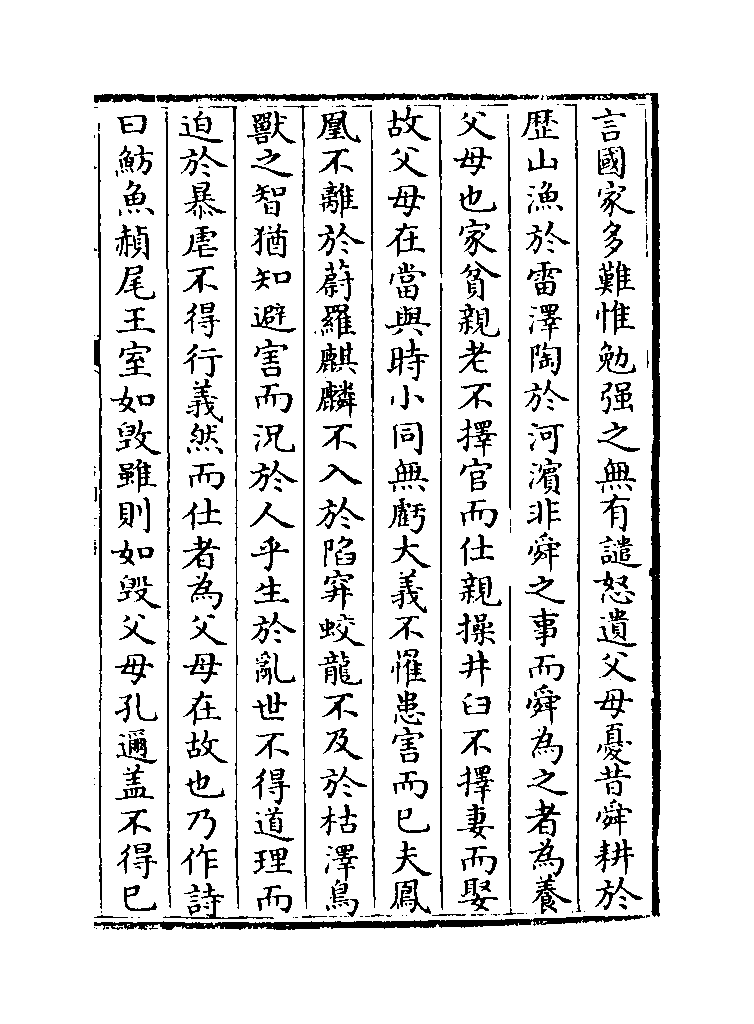 言國家多難惟勉强之無有譴怒遺父母憂昔舜耕於
歴山漁於雷澤陶於河濱非舜之事而舜為之者為養
父母也家貧親老不擇官而仕親操井臼不擇妻而娶
故父母在當與時小同無虧大義不罹患害而已夫鳳
凰不離於蔚羅麒麟不入於陷穽蛟龍不及於枯澤鳥
獸之智猶知避害而況於人乎生於亂世不得道理而
迫於暴虐不得行義然而仕者為父母在故也乃作詩
曰魴魚赬尾王室如毁雖則如毁父母孔邇蓋不得已